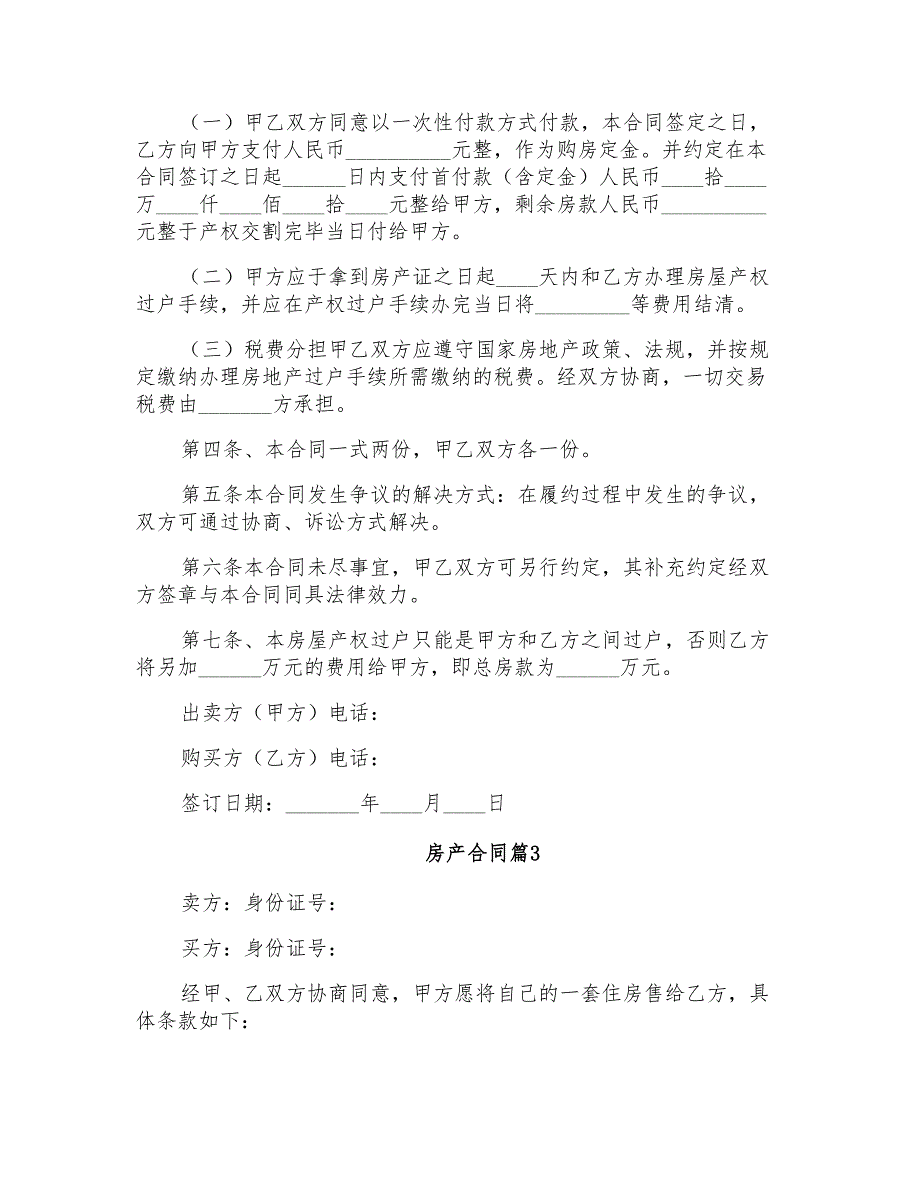 （一）甲乙双方同意以一次性付款方式付款，本合同签定之日，
乙方向甲方支付人民币__________元整，作为购房定金。并约定在本
合同签订之日起______日内支付首付款（含定金）人民币____拾____
万____仟____佰____拾____元整给甲方，剩余房款人民币__________
元整于产权交割完毕当日付给甲方。
（二）甲方应于拿到房产证之日起____天内和乙方办理房屋产权
过户手续，并应在产权过户手续办完当日将_________等费用结清。
（三）税费分担甲乙双方应遵守国家房地产政策、法规，并按规
定缴纳办理房地产过户手续所需缴纳的税费。经双方协商，一切交易
税费由_______方承担。
第四条、本合同一式两份，甲乙双方各一份。
第五条本合同发生争议的解决方式：在履约过程中发生的争议，
双方可通过协商、诉讼方式解决。
第六条本合同未尽事宜，甲乙双方可另行约定，其补充约定经双
方签章与本合同同具法律效力。
第七条、本房屋产权过户只能是甲方和乙方之间过户，否则乙方
将另加______万元的费用给甲方，即总房款为______万元。
出卖方（甲方）电话：
购买方（乙方）电话：
签订日期：_______年____月____日
房产合同篇3
卖方：身份证号：
买方：身份证号：
经甲、乙双方协商同意，甲方愿将自己的一套住房售给乙方，具
体条款如下：